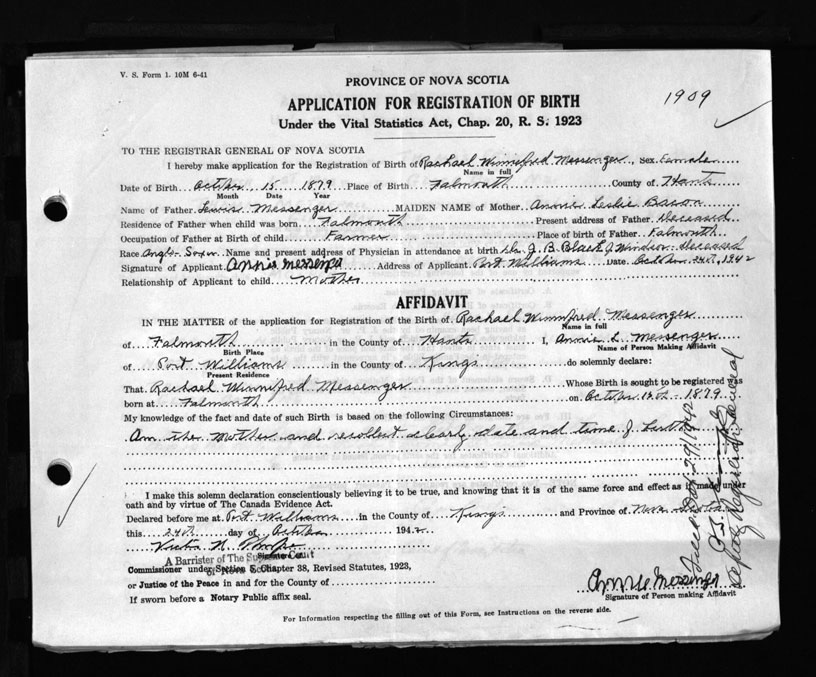 V. S. Form 1. 10M 6-41
PROVINCE OF NOVA SCOTIA
1909
APPLICATION FOR REGISTRATION OF BIRTH
Under the Vital Statistics Act, Chap. 20, R. S. 1923
TO THE REGISTRAR GENERAL OF NOVA SCOTIA
I hereby make application for the Registration of Birth of Rachael Winnifred Messenger, sex Female
Name in full
Date of Birth October 15 1879 Place of Birth Falmouth County of Hants
Month Date Year
Name of Father Lewis Messenger MAIDEN NAME of Mother Annie Leslie Bacon
Residence of Father when child was born Falmouth Present address of Father deceased
Occupation of Father at Birth of child Farmer Place of Birth of Father Falmouth
Race Anglo-Saxon Name and present address of Physician in attendance at birth Dr. J. B. Black of Windsor deceased
Signature of Applicant Annie Messenger Address of Applicant Port Williams Date October 24th, 1942
Relationship of Applicant to child Mother
AFFIDAVIT
IN THE MATTER of the application for Registration of the Birth of Rachael Winnifred Messenger
Name in full
of Falmouth in the County of Hants I, Annie L. Messenger
Birth Place Name of Person Making Affidavit
of Port Williams in the County of Kings do solemnly declare:
Present Residence
That Rachael Winnifred Messenger Whose Birth is sought to be registered was
born at Falmouth on October 15th 1879
My knowledge of the fact and date of such Birth is based on the following Circumstances:
Am the Mother and recollect clearly date and time of birth
I make this solemn declaration conscientiously believing it to be true, and knowing that it is of the same force and effect as if made under
oath and by virtue of The Canada Evidence Act.
Declared before me at Port Williams in the County of Kings and Province of Nova Scotia
this 24th day of October 1942
A Barrister of The Supreme Court
of Nova Scotia
Commissioner under Section 5, Chapter 38, Revised Statutes, 1923,
or Justice of the Peace in and for the County of
If sworn before a Notary Public affix seal.
Annie Messenger
Signature of Person making Affidavit
For Information respecting the filling out of this Form, see Instructions on the reverse side.
29/1942
Deputy Registrar General